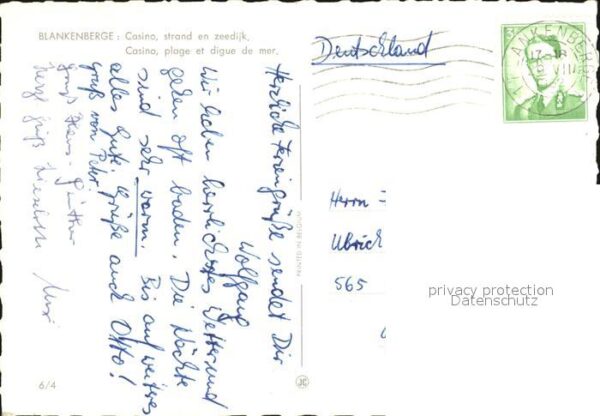 BLANKENBERGE : Casino, strand en zeedijk,
Casino, plage et digue de mer.
Deutschland
BLANKENBERGE
Herzliche Feriengrüße sendet Dir
Wolfgang
Wir haben herrlichstes Wetter und
gehen oft baden. Die Nächte
sind sehr warm. Bis auf weiteres
alles gute, Grüße auch Otto!
gruß von Peter
gruß Hans-Günther
herzl. grüß Lieselotte
Herrn
Ulrich
565
PRINTED IN BELGIUM
6/4
privacy protection
Datenschutz